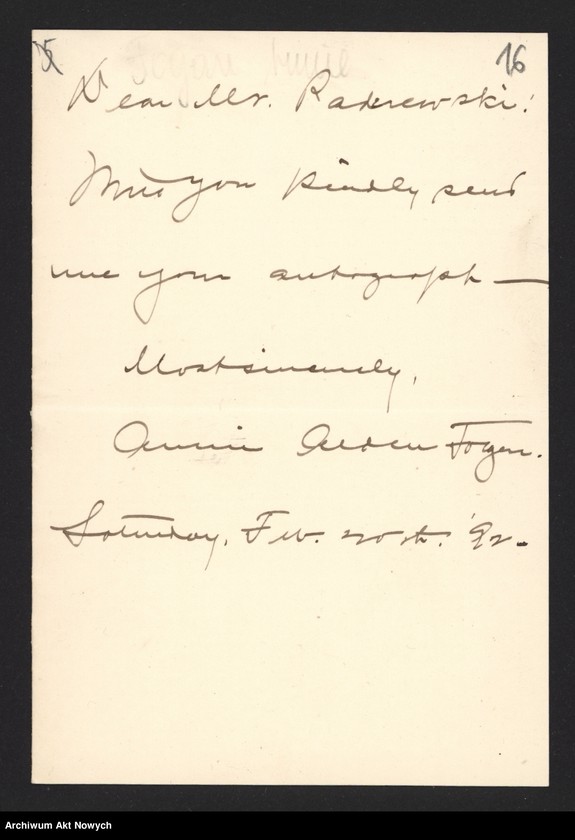 16
Dear Mr. Paderewski!
Will you kindly send
me your autograph —
Most sincerely,
Annie Alden Fogen.
Saturday, Feb. 20th. '92.
Archiwum Akt Nowych